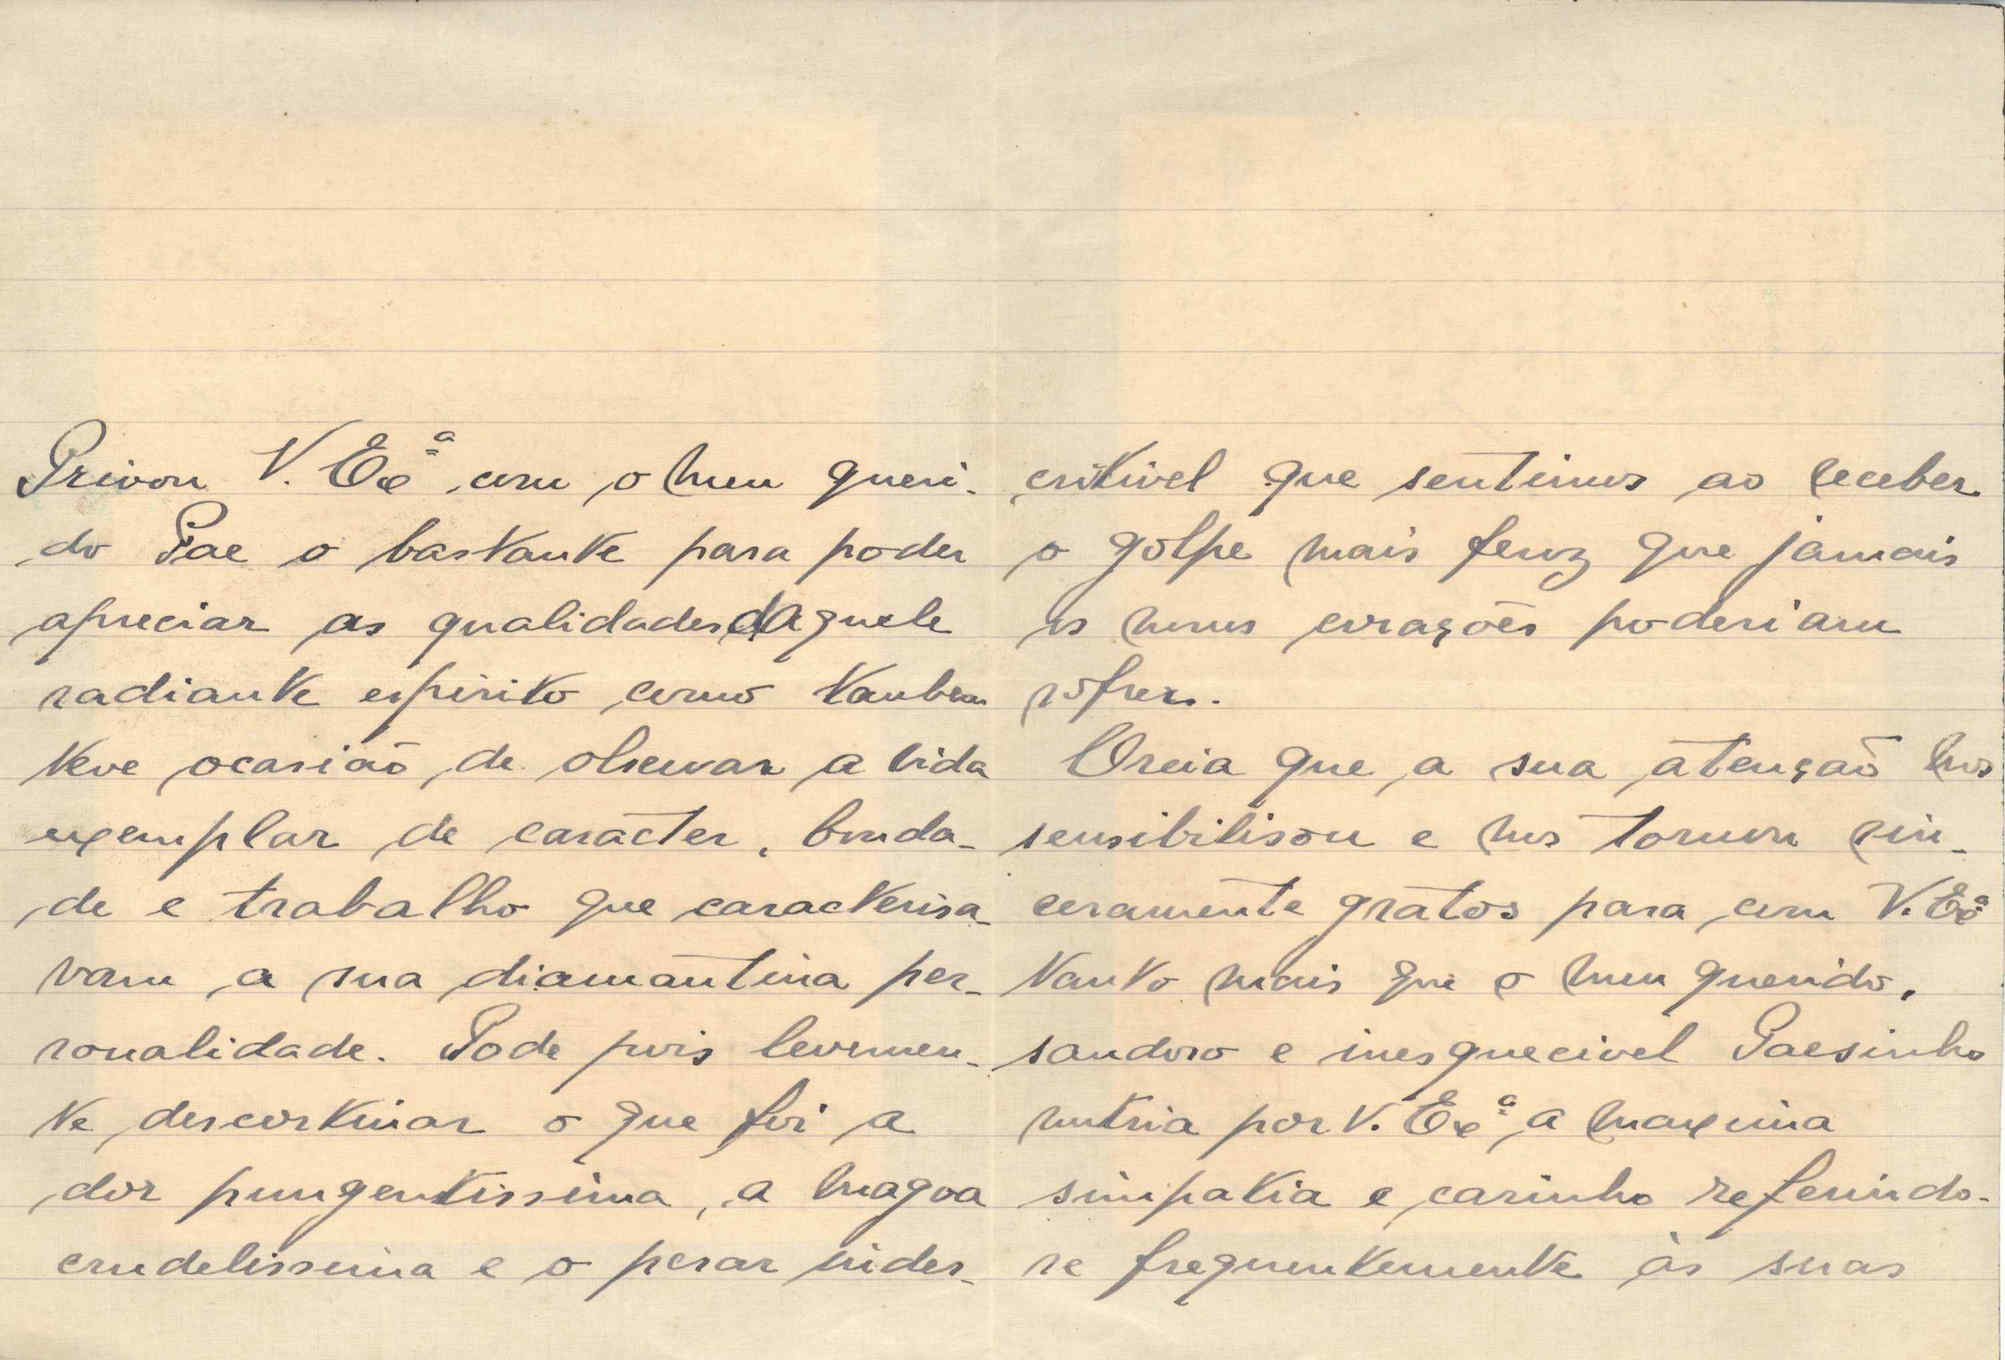 Privou V. Exª com o meu queri-
do Pae o bastante para poder
apreciar as qualidades daquele
radiante espirito como tambem
teve ocasião de observar a vida
exemplar de caracter, bonda-
de e trabalho que caracterisa-
vam a sua diamantina per-
sonalidade. Pode pois levemen-
te descortinar o que foi a
dor pungentissima, a magoa
crudelissima e o pesar indes-
critivel que sentimos ao receber
o golpe mais feroz que jamais
os nossos corações poderiam
sofrer.
Creia que a sua atenção nos
sensibilisou e nos tornou sin-
ceramente gratos para com V. Exª
tanto mais que o meu querido,
saudoso e inesquecivel Paesinho
nutria por V. Exª a maxima
simpatia e carinho referindo-
se frequentemente às suas